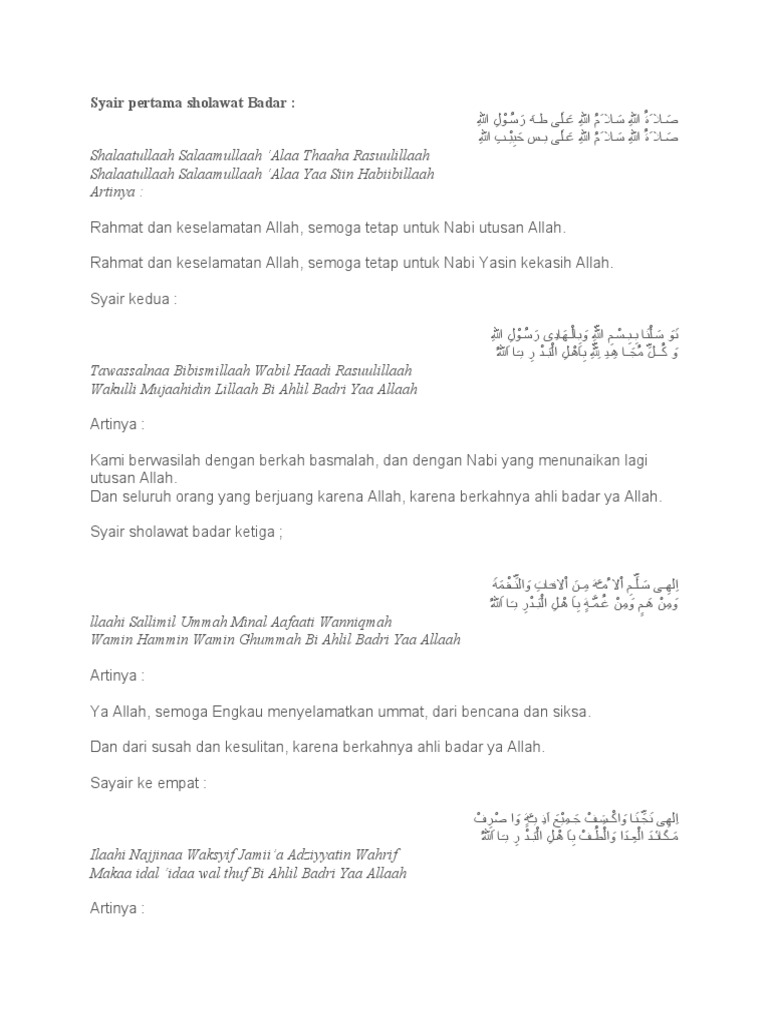 Syair pertama sholawat Badar :
صَلاَةُ اللهِ سَلاَمُ اللهِ عَلَى طـهَ رَسُوْلِ اللهِ
صَلاَةُ اللهِ سَلاَمُ اللهِ عَلَى يـس حَبِيْبِ اللهِ
Shalaatullaah Salaamullaah 'Alaa Thaaha Rasuulillaah
Shalaatullaah Salaamullaah 'Alaa Yaa Siin Habiibillaah
Artinya :
Rahmat dan keselamatan Allah, semoga tetap untuk Nabi utusan Allah.
Rahmat dan keselamatan Allah, semoga tetap untuk Nabi Yasin kekasih Allah.
Syair kedua :
تَوَ سَلْنَا بِبِسْمِ اللّهِ وَبِالْهَادِى رَسُوْلِ اللهِ
وَ كُــلِّ مُجَــا هِدٍ لِلّهِ بِاَهْلِ الْبَدْ رِ يـَا اَللهُ
Tawassalnaa Bibismillaah Wabil Haadi Rasuulillaah
Wakulli Mujaahidin Lillaah Bi Ahlil Badri Yaa Allaah
Artinya :
Kami berwasilah dengan berkah basmalah, dan dengan Nabi yang menunaikan lagi
utusan Allah.
Dan seluruh orang yang berjuang karena Allah, karena berkahnya ahli badar ya Allah.
Syair sholawat badar ketiga ;
اِلهِـى سَلِّـمِ اْلاُ مـَّة مِـنَ اْلافـَاتِ وَالنِّـقْمَةَ
وَمِنْ هَمٍ وَمِنْ غُمَّـةٍ بِاَ هْلِ الْبَدْرِ يـَا اَللهُ
llaahi Sallimil Ummah Minal Aafaati Wanniqmah
Wamin Hammin Wamin Ghummah Bi Ahlil Badri Yaa Allaah
Artinya :
Ya Allah, semoga Engkau menyelamatkan ummat, dari bencana dan siksa.
Dan dari susah dan kesulitan, karena berkahnya ahli badar ya Allah.
Sayair ke empat :
اِلهِى نَجِّنَا وَاكْشِفْ جَمِيْعَ اَذِ يَّةٍ وَا صْرِفْ
مَـكَائدَ الْعِدَا وَالْطُفْ بِاَ هْلِ الْبَدْ رِ يـَا اَللهُ
Ilaahi Najjinaa Waksyif Jamii'a Adziyyatin Wahrif
Makaa idal 'idaa wal thuf Bi Ahlil Badri Yaa Allaah
Artinya :